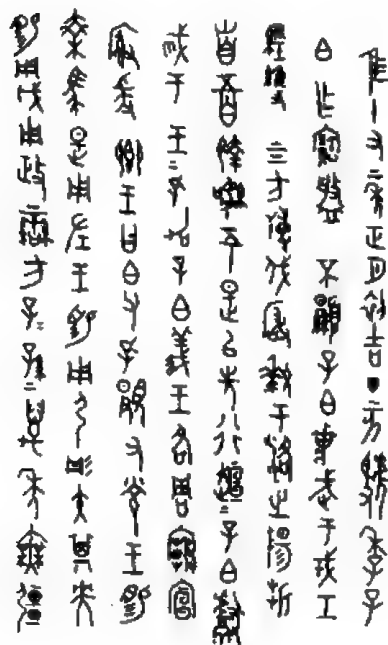 隹十又二年正月初吉丁亥虢季子
白乍寶盤不顯子白壯武于戎工
經維四方搏伐玁狁于洛之陽折
首五百執訊五十是以先行桓=子白獻
馘于王=孔加子白義王各周廟宣
榭爰鄉王曰白父孔顯又光王賜
乘馬是用左王賜用弓彤矢其央
賜用戉用政蠻方子=孫=萬年無疆